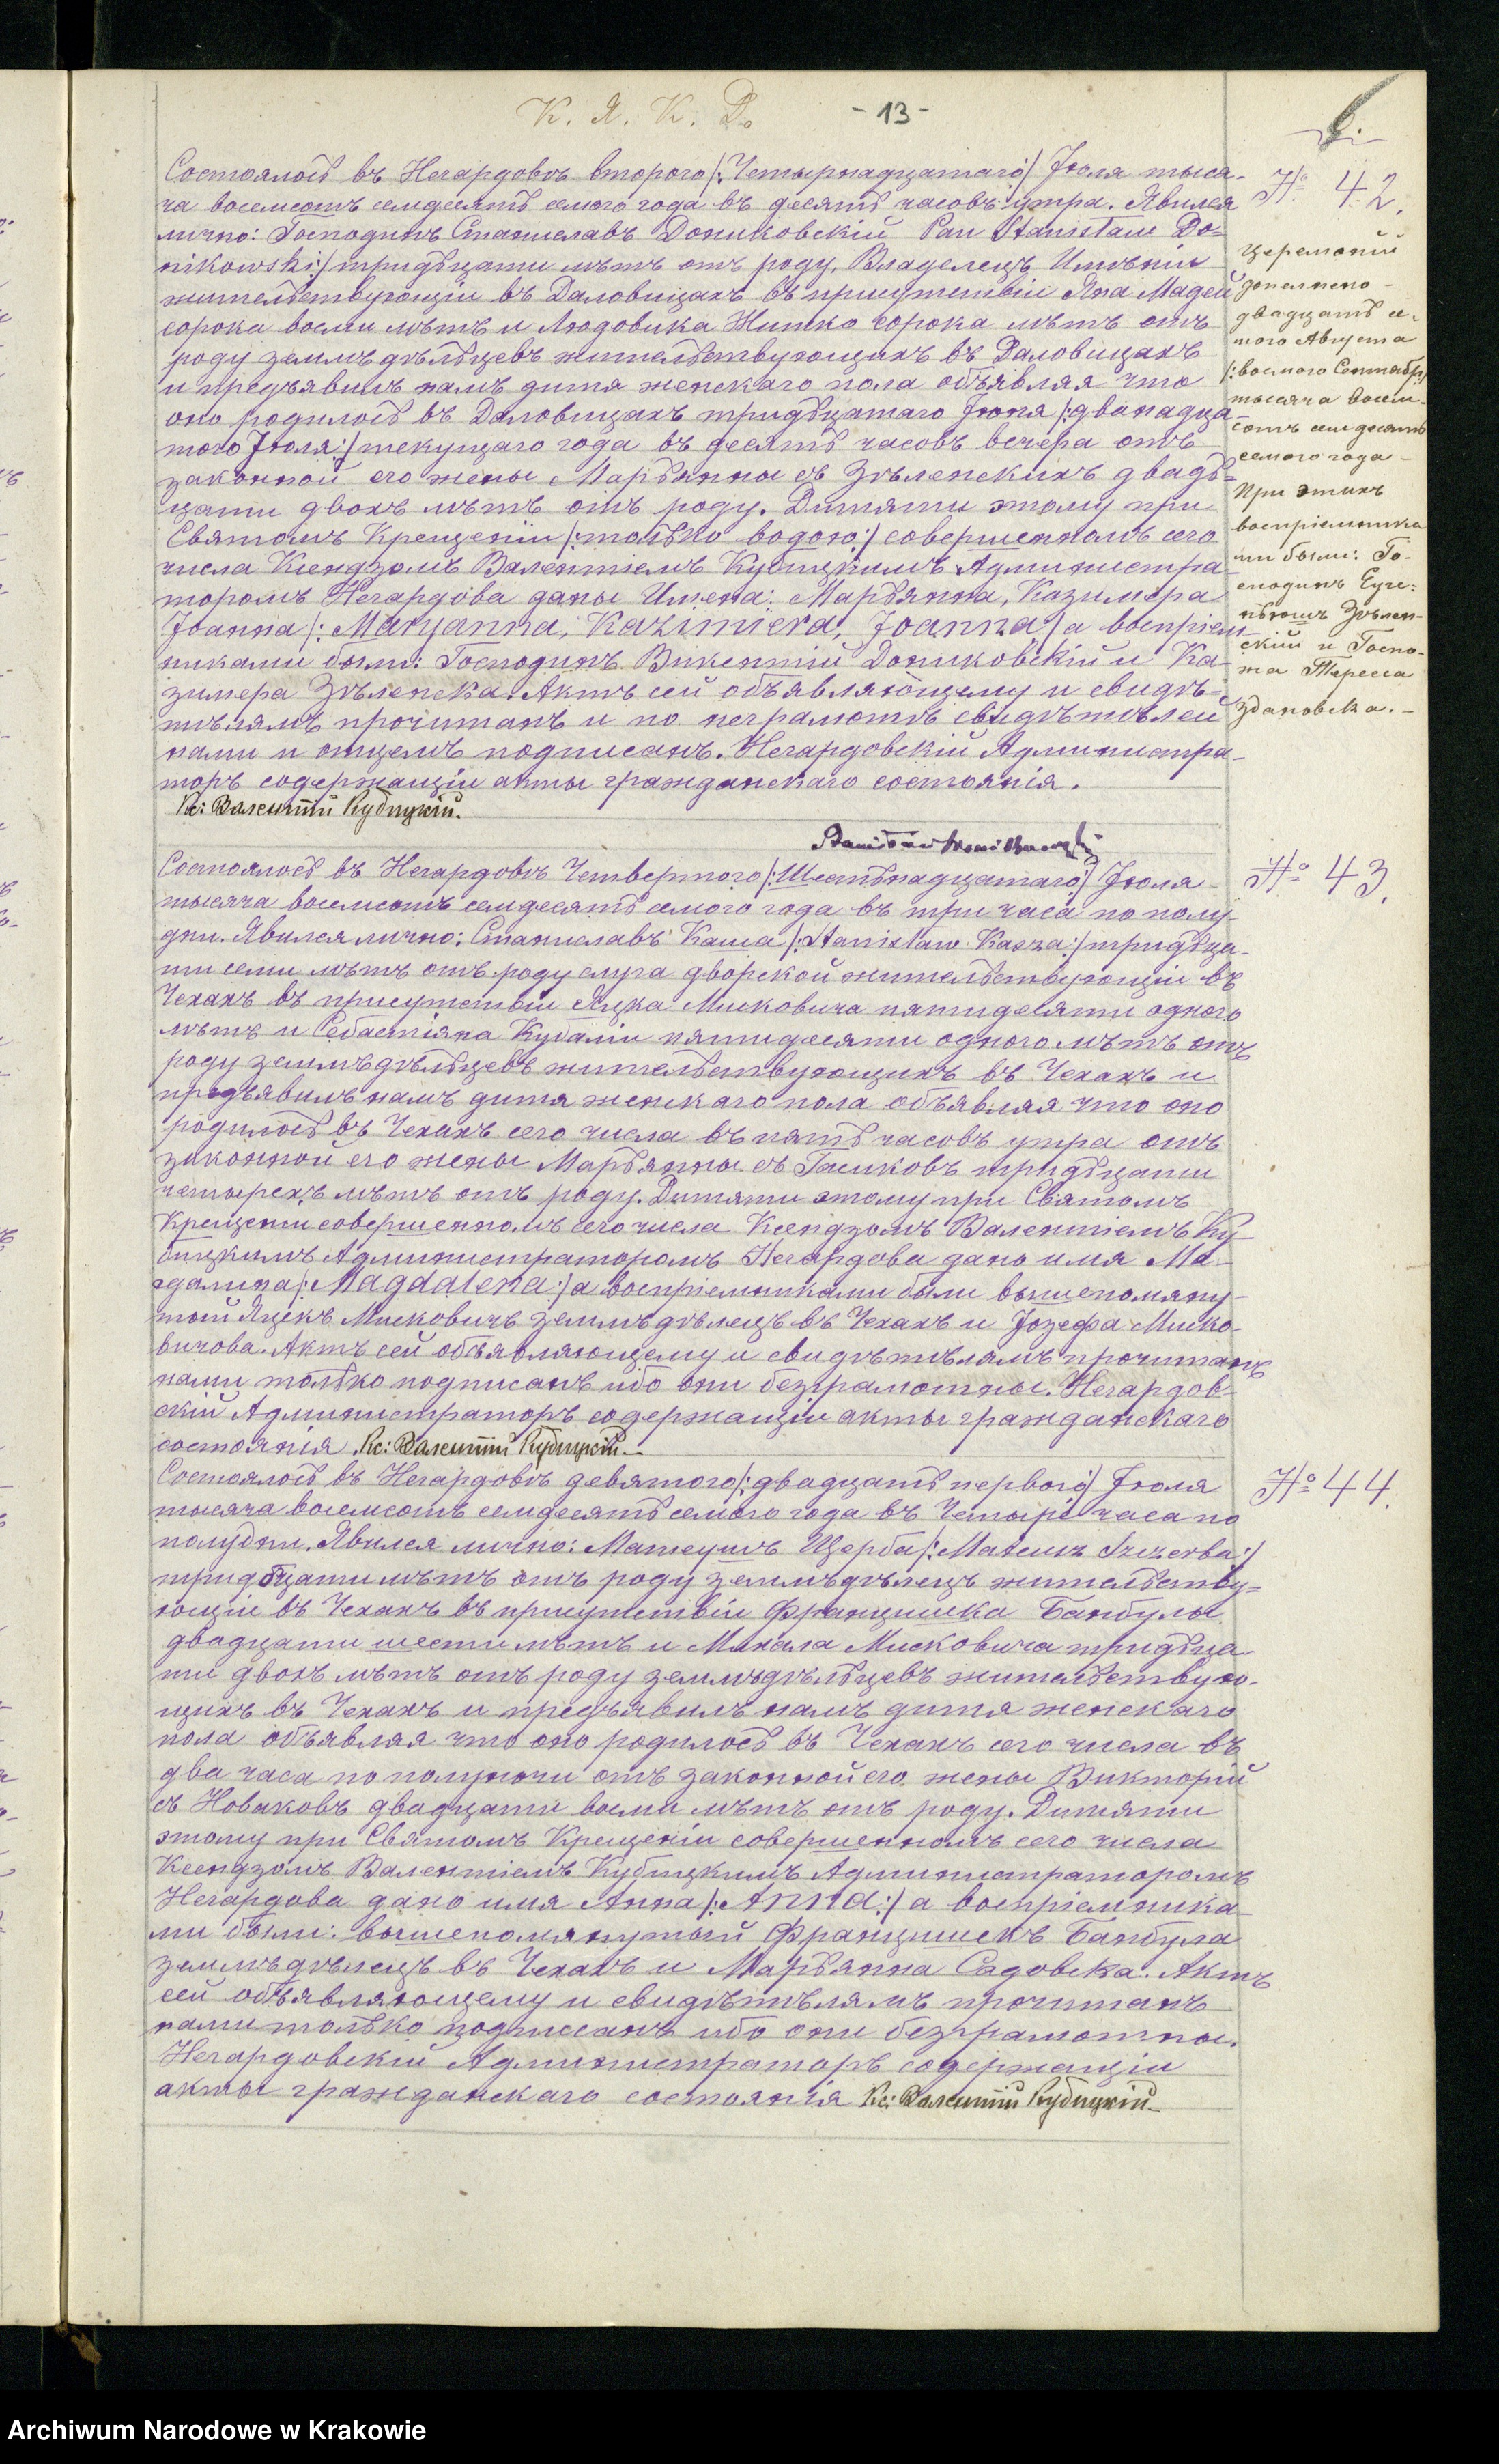 К. Я. К. Р.
- 13 -
6.
№ 42.
Состоялось въ Негардовѣ второго /:Четырнадцатаго:/ Іюля тыся-
ча восемсотъ семдесятъ семого года въ десять часовъ утра. Явился
лично: Господинъ Станиславъ Дониковскій Pan Stanisław Do=
nikowski:/ тридьцати лѣтъ отъ роду, Владелецъ Имѣнія
жительствующіи въ Даловицахъ въ присутствіи Яна Мадей
сорока восми лѣтъ и Людовика Житко сорока лѣтъ отъ
роду землѣдѣльцевъ жительствующихъ въ Даловицахъ
и предъявилъ намъ дитя женскаго пола объявляя что
оно родилось въ Даловицахъ тридьцатаго Іюня /:двенадца-
того Іюля:/ текущаго года въ десять часовъ вечера отъ
законной его жены Марьянны съ Зѣленскихъ двадь=
цати двохъ лѣтъ отъ роду. Дитяти этому при
Святомъ Крещеніи /:только водою:/ совершенномъ сего
числа Ксендзомъ Валентіемъ Кубицкимъ Администра-
торомъ Негардова даны Имена: Марьянна, Казимера
Іоанна /:Maryanna, Kazimiera, Joanna:/ а воспріем-
никами были: Господинъ Викентій Дониковскій и Ка-
зимера Зѣленска. Актъ сей объявляющему и свидѣ=
тѣлямъ прочитанъ и по неграмотѣ свидѣтѣлей
нами и отцемъ подписанъ. Негардовскій Администра-
торъ содержащіи акты гражданскаго состоянія.
Кс: Валентій Кубицкій.
Церемоній
дополнено -
двадцать се-
мого Августа
/:восмого Сентабр:/
тысяча восем-
сотъ семдесятъ
семого года -
При этихъ
воспріемника
ми были: Го-
сподинъ Евге-
ніюшъ Зѣлен-
скій и Госпо-
жа Тересса
Здановска. -
№ 43.
Состоялось въ Негардовѣ Четвертого /:Шестьнадцатаго:/ Іюля
тысяча восемсотъ семдесятъ семого года въ три часа по полу-
дни. Явился лично: Станиславъ Каша /:Stanisław Kasza:/ тридьца-
ти семи лѣтъ отъ роду слуга дворской жительствующіи въ
Чехахъ въ присутствіи Яцка Мисковича пятидесяти одного
лѣтъ и Себастіяна Кубали пятидесяти одного лѣтъ отъ
роду землѣдѣльцевъ жительствующихъ въ Чехахъ и
предъявилъ намъ дитя женскаго пола объявляя что оно
родилось въ Чехахъ сего числа въ пять часовъ утра отъ
законной его жены Марьянны съ Гасиковъ тридьцати
четырехъ лѣтъ отъ роду. Дитяти этому при Святомъ
Крещеніи совершенномъ сего числа Ксендзомъ Валентіемъ Ку-
бицкимъ Администраторомъ Негардова дано имя Ма-
гдалина /:Magdalena:/ а воспріемниками были вышепомяну-
тый Яцекъ Мисковичъ землѣдѣлецъ въ Чехахъ и Іозефа Миско-
вичова. Актъ сей объявляющему и свидѣтѣлямъ прочитанъ
нами только подписанъ ибо они безграмотны. Негардов-
скій Администраторъ содержащіи акты гражданскаго
состоянія. Кс: Валентій Кубицкій.
№ 44.
Состоялось въ Негардовѣ девятого /:двадцать первого:/ Іюля
тысяча восемсотъ семдесятъ семого года въ Четыре часа по
полудни. Явился лично: Матеушъ Щерба /:Mateusz Szczerba:/
тридьцати лѣтъ отъ роду землѣдѣлецъ жительству=
ющіи въ Чехахъ въ присутствіи Францишка Банбулы
двадцати шести лѣтъ и Михала Мисковича тридьца-
ти двохъ лѣтъ отъ роду землѣдѣльцевъ жительствую-
щихъ въ Чехахъ и предъявилъ намъ дитя женскаго
пола объявляя что оно родилось въ Чехахъ сего числа въ
два часа по полуночи отъ законной его жены Викторіи
съ Новаковъ двадцати восми лѣтъ отъ роду. Дитяти
этому при Святомъ Крещеніи совершенномъ сего числа
Ксендзомъ Валентіемъ Кубицкимъ Администраторомъ
Негардова дано имя Анна /:Anna:/ а воспріемника-
ми были: вышепомянутый Францишекъ Банбула
землѣдѣлецъ въ Чехахъ и Марьянна Садовска. Актъ
сей объявляющему и свидѣтѣлямъ прочитанъ
нами только подписанъ ибо они безграмотны.
Негардовскій Администраторъ содержащіи
акты гражданскаго состоянія Кс: Валентій Кубицкій.
Archiwum Narodowe w Krakowie